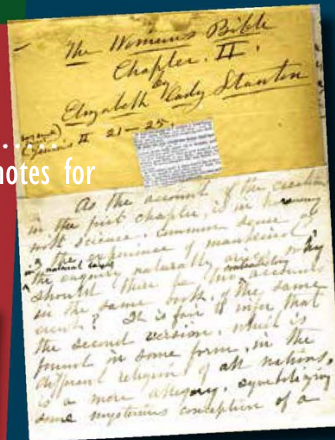 The Woman's Bible
Chapter. II.
by
Elizabeth Cady Stanton
Genesis II 21–25.
notes for
As the account of the creation
in the first chapter, is in harmony
with science, common sense, &
the experience of mankind in
natural laws,
the enquiry naturally arises, why
should there be two contradictory accounts
in the same book, of the same
event? It is fair to infer that
the second version, which is
found in some form, in the
different religions of all nations,
is a mere allegory, symbolizing
some mysterious conception of a